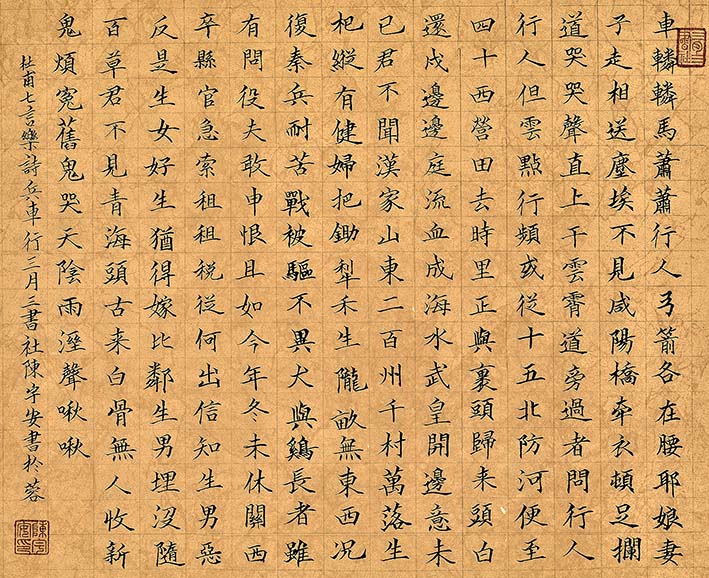 車轔轔馬蕭蕭行人弓箭各在腰耶娘妻
子走相送塵埃不見咸陽橋牽衣頓足攔
道哭哭聲直上干雲霄道旁過者問行人
行人但雲點行頻或從十五北防河便至
四十西營田去時里正與裹頭歸来頭白
還戍邊邊庭流血成海水武皇開邊意未
已君不聞漢家山東二百州千村萬落生
杞縱有健婦把鋤犁禾生隴畝無東西况
復秦兵耐苦戰被驅不異犬與鷄長者雖
有問役夫敢申恨且如今年冬未休關西
卒縣官急索租租税從何出信知生男惡
反是生女好生猶得嫁比鄰生男埋沒隨
百草君不見青海頭古来白骨無人收新
鬼煩冤舊鬼哭天陰雨溼聲啾啾
杜甫七言樂詩兵車行三月三書社陳宇安書於蓉